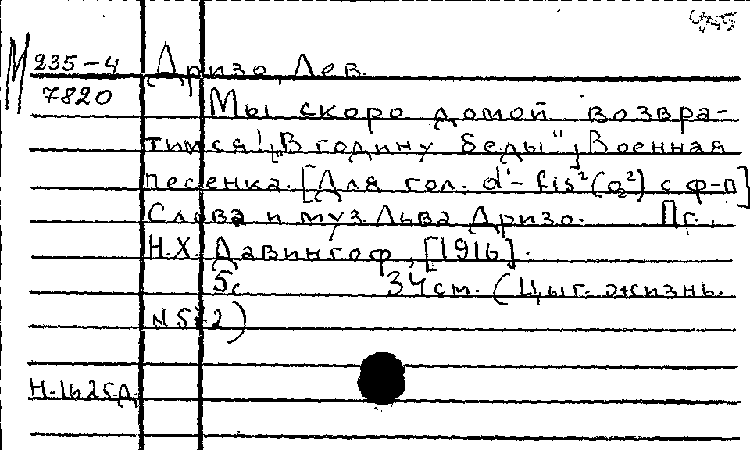 М 235-4 Дризо, Лев.
7820 Мы скоро домой возвра-
тимся! „В годину беды“; Военная
песенка. [Для гол. d¹-fis²(a²) с ф-п]
Слова и муз. Льва Дризо. Пг.,
Н.Х. Давингоф, [1916].
5с 34см. (Цыг. жизнь.
N 572)